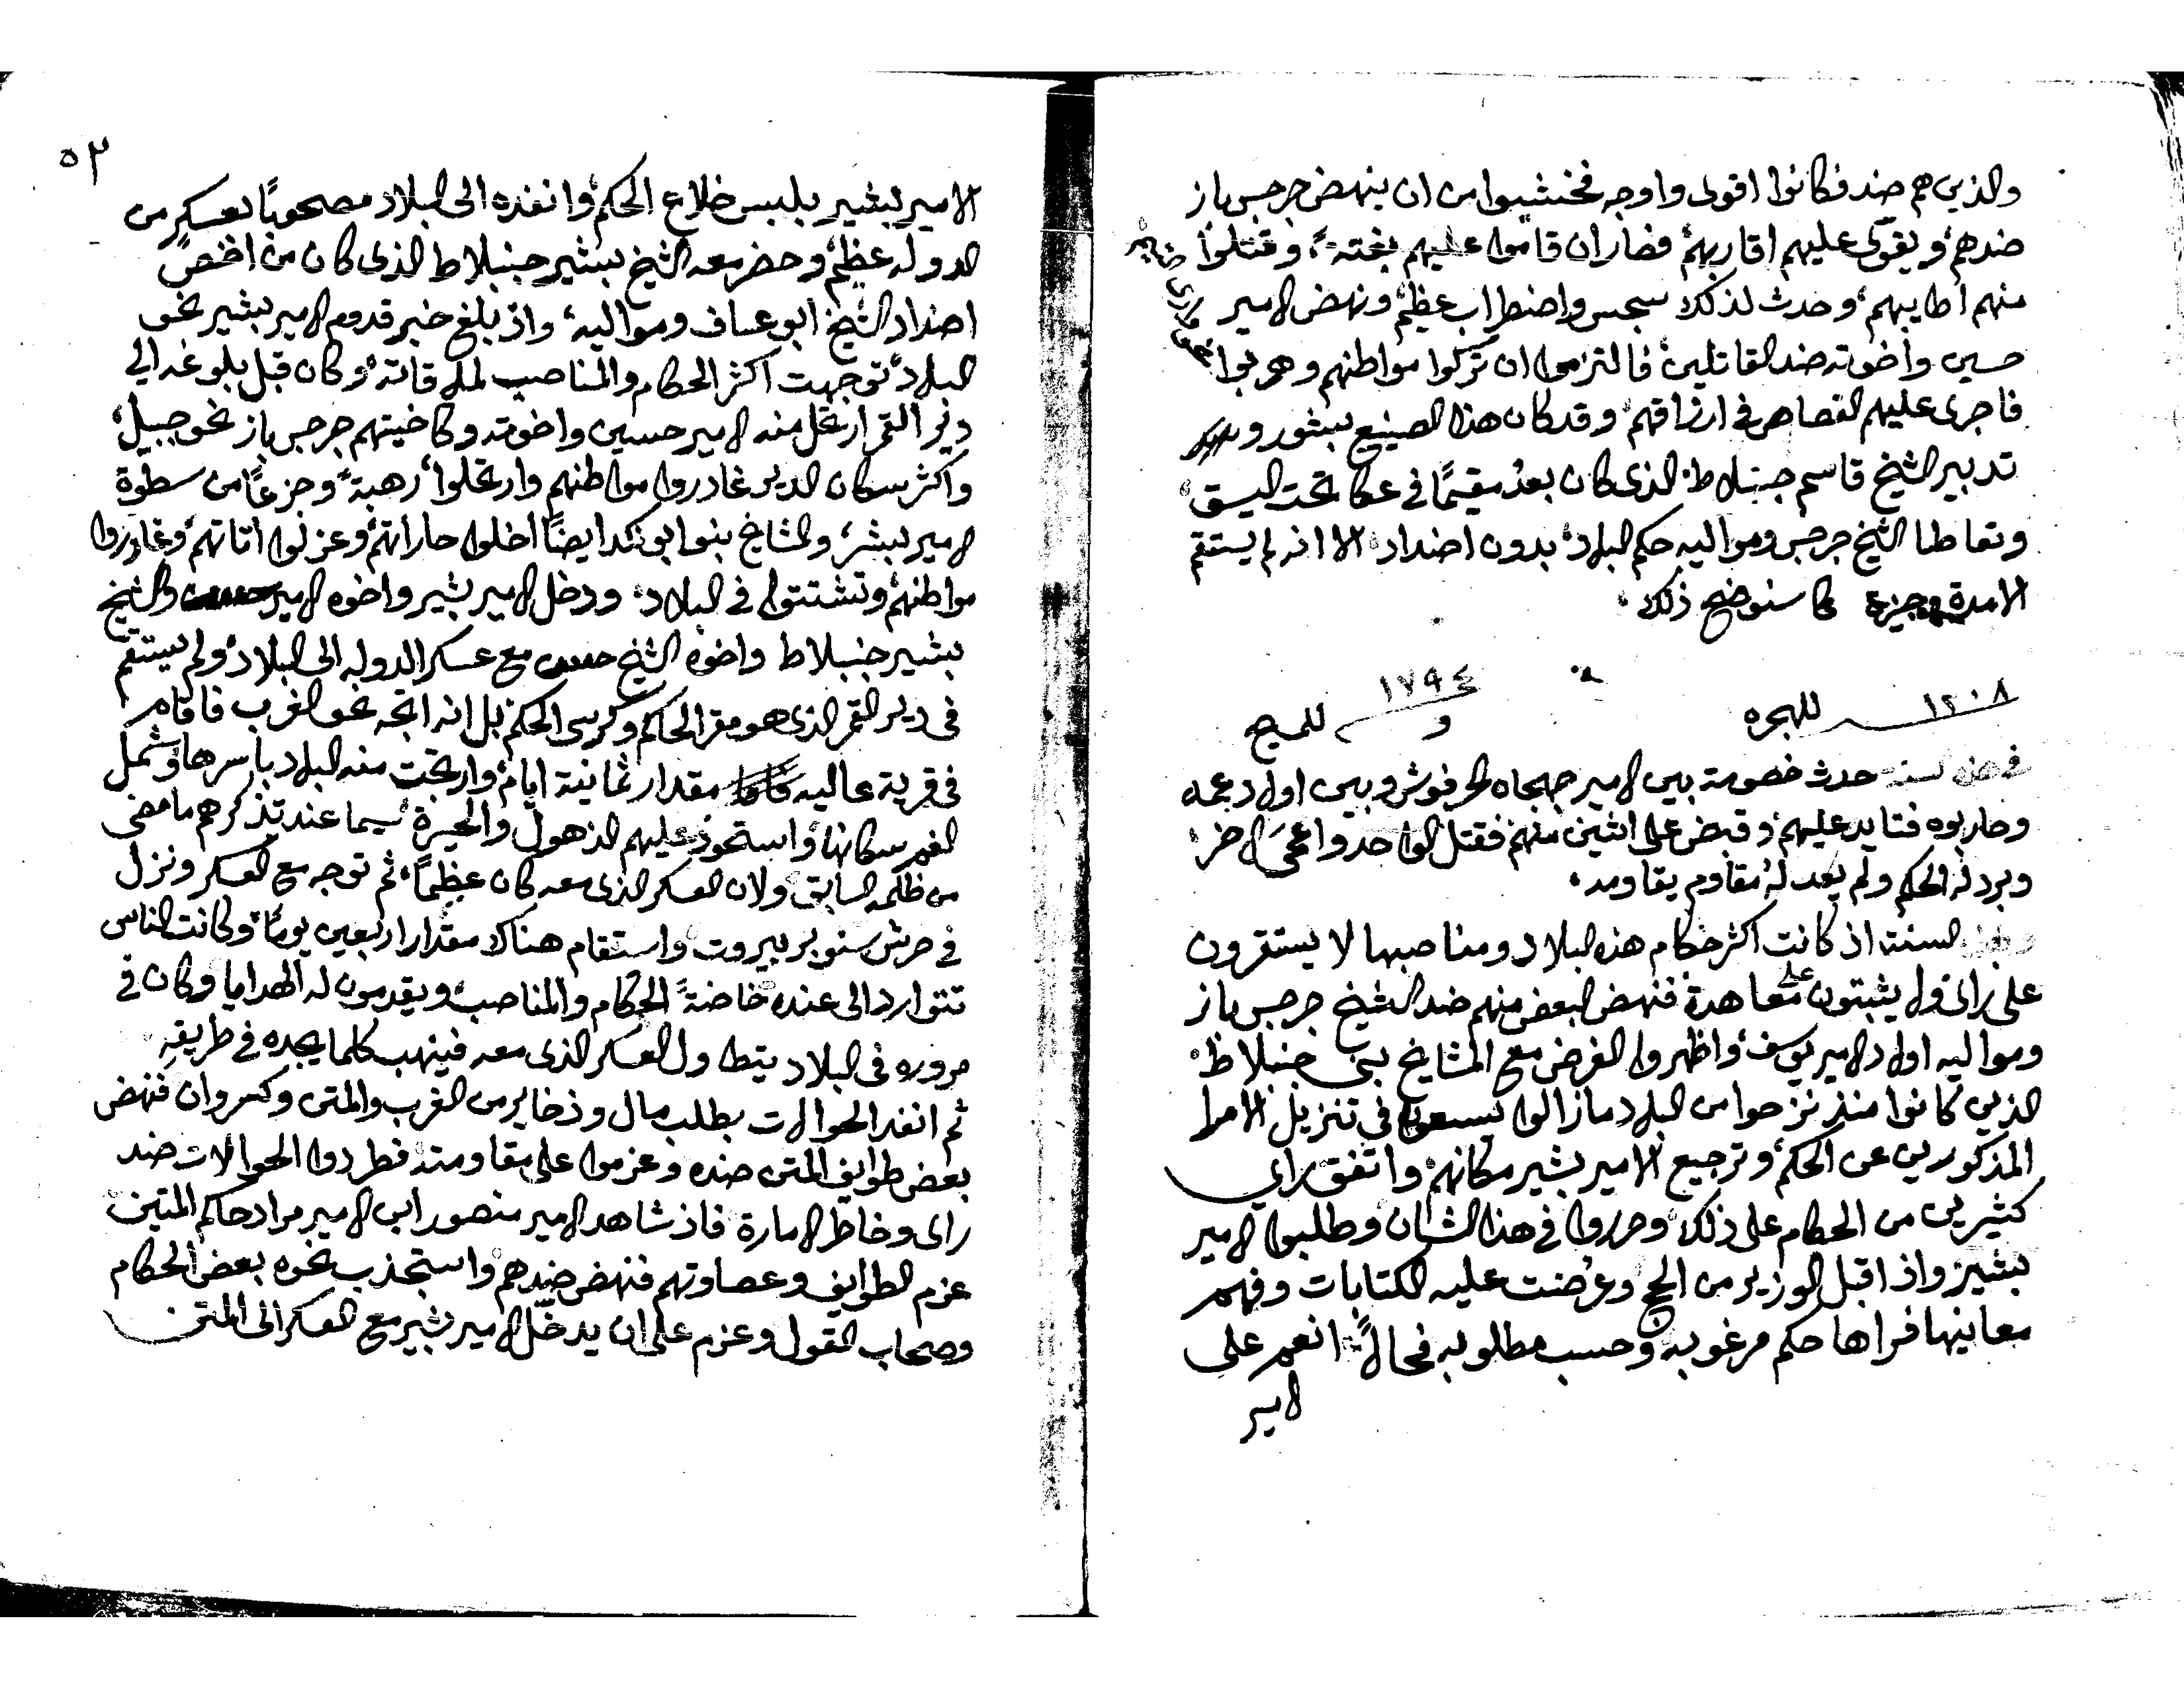 والذين هم ضد فكانوا اقوى واوجه فخشيوا من ان ينهض جرجس باز
ضدهم ويقوى عليهم اقاربهم فصار ان قاموا عليهم بغتة، وقتلوا
منهم اطايبهم، وحدث لذلك سجس واضطراب عظيم ونهض الامير
حسين واخوته ضد القاتلين فالتزموا ان تركوا مواطنهم وهربوا
فاجرى عليهم القصاص في ارزاقهم وقد كان هذا الصنيع بشور و
تدبير الشيخ قاسم جنبلاط الذى كان بعد مقيمًا في عكا تحت اليسق
وتعاطا الشيخ جرجس ومواليه حكم البلاد بدون اضداد الا انه لم يستقم
الا مدة وجيزة كما سنوضح ذلك
١٢٠٨ للهجره و ١٧٩٤ للمسيح
في هذه السنة حدث خصومة بين الامير جهجاه الحرفوش وبين اولاد عمه
وحاربوه فتايد عليهم وقبض على اثنين منهم فقتل الواحد واعمى الاخر
وبرد له الحكم ولم يعد له مقاوم يقاومه
السنة اذ كانت اكثر حكام هذه البلاد ومناصبها لا يستقرون
على راى ولا يثبتون على معاهدة فنهض البعض منهم ضد الشيخ جرجس باز
ومواليه اولاد الامير يوسف واظهروا الغرض مع المشايخ بنى جنبلاط
الذين كانوا منذ نزحوا من البلاد ما زالوا يسعون في تنزيل الامرا
المذكورين عن الحكم وترجيع الامير بشير مكانهم واتفق راي
كثيرين من الحكام على ذلك وحرروا في هذا الشان وطلبوا الامير
بشير واذ اقبل الوزير من الحج وعرضت عليه الكتابات وفهم
معانيها فراها حكم مرغوبه وحسب مطلوبه فحالاً انعم على
الامير
٥٢
الامير بشير بلبس خلاع الحكم وانفذه الى البلاد مصحوبًا بعسكر من
الدوله عظيم وحضر معه الشيخ بشير جنبلاط الذى كان من اخص
اضداد الشيخ ابو عساف ومواليه، واذ بلغ خبر قدوم الامير بشير نحو
البلاد توجهت اكثر الحكام والمناصب لملاقاته وكان قبل بلوغه الي
دير القمر ارتحل منه الامير حسين واخوته وكاخيتهم جرجس باز نحو جبيل
واكثر سكان الدير غادروا مواطنهم وارتحلوا رهبةً وجزعًا من سطوة
الامير بشير، والمشايخ بنو ابو نكد ايضًا اخلوا حاراتهم وعزلوا اتاتهم وغادروا
مواطنهم وتشتتوا في البلاد ودخل الامير بشير واخوه الامير حسن والشيخ
بشير جنبلاط واخوه الشيخ حسن مع عسكر الدوله الى البلاد ولم يستقم
في دير القمر الذى هو مقر الحاكم وكرسى الحكم بل انه اتجه نحو الغرب فاقام
في قرية عاليه مقدار ثمانية ايام وارتجت منه البلاد باسرها وشمل
الغم سكانها واستحوذ عليهم الذهول والحيرة سيما عند تذكرهم ما مضى
من ظلمه السابق ولان العسكر الذى معه كان عظيمًا، ثم توجه مع العسكر ونزل
في حرش سنوبر بيروت واستقام هناك مقدار اربعين يومًا وكانت الناس
تتوارد الى عنده خاصةً الحكام والمناصب ويقدمون له الهدايا وكان في
مروره في البلاد يتطاول العسكر الذى معه فينهب كلما يجده في طريقه
ثم انفذ الحوالات بطلب مال وذخاير من الغرب والمتن وكسروان فنهض
بعض طوايف المتن ضده وعزموا على مقاومته فطردوا الحوالات ضد
راى وخاطر الامارة فاذ شاهد الامير منصور ابن الامير مراد حاكم المتين
عزم الطوايف وعصاوتهم فنهض ضدهم واستجذب نحوه بعض الحكام
وصحاب القول وعزم على ان يدخّل الامير بشير مع العسكر الى المتن